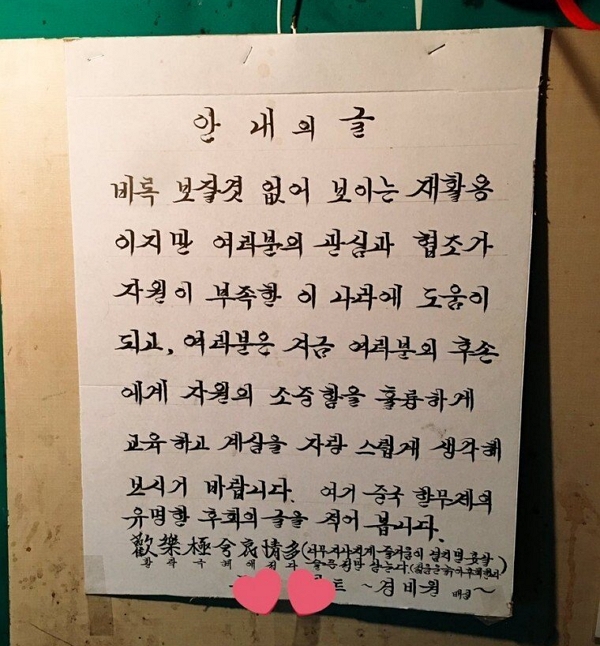 안내의 글
비록 보잘것 없어 보이는 재활용
이지만 여러분의 관심과 협조가
자원이 부족한 이 나라에 도움이
되고, 여러분은 지금 여러분의 후손
에게 자원의 소중함을 훌륭하게
교육하고 계심을 자랑 스럽게 생각해
보시기 바랍니다. 여기 중국 한무제의
유명한 후회의 글을 적어 봅니다.
歡樂極兮哀情多(너무지나치게 즐거움이
환락극혜애정다
~경비원